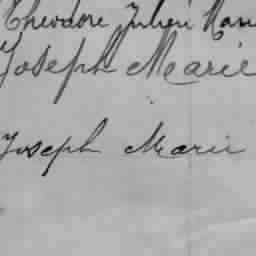 Theodore Julien
Joseph Marie
Joseph Marie